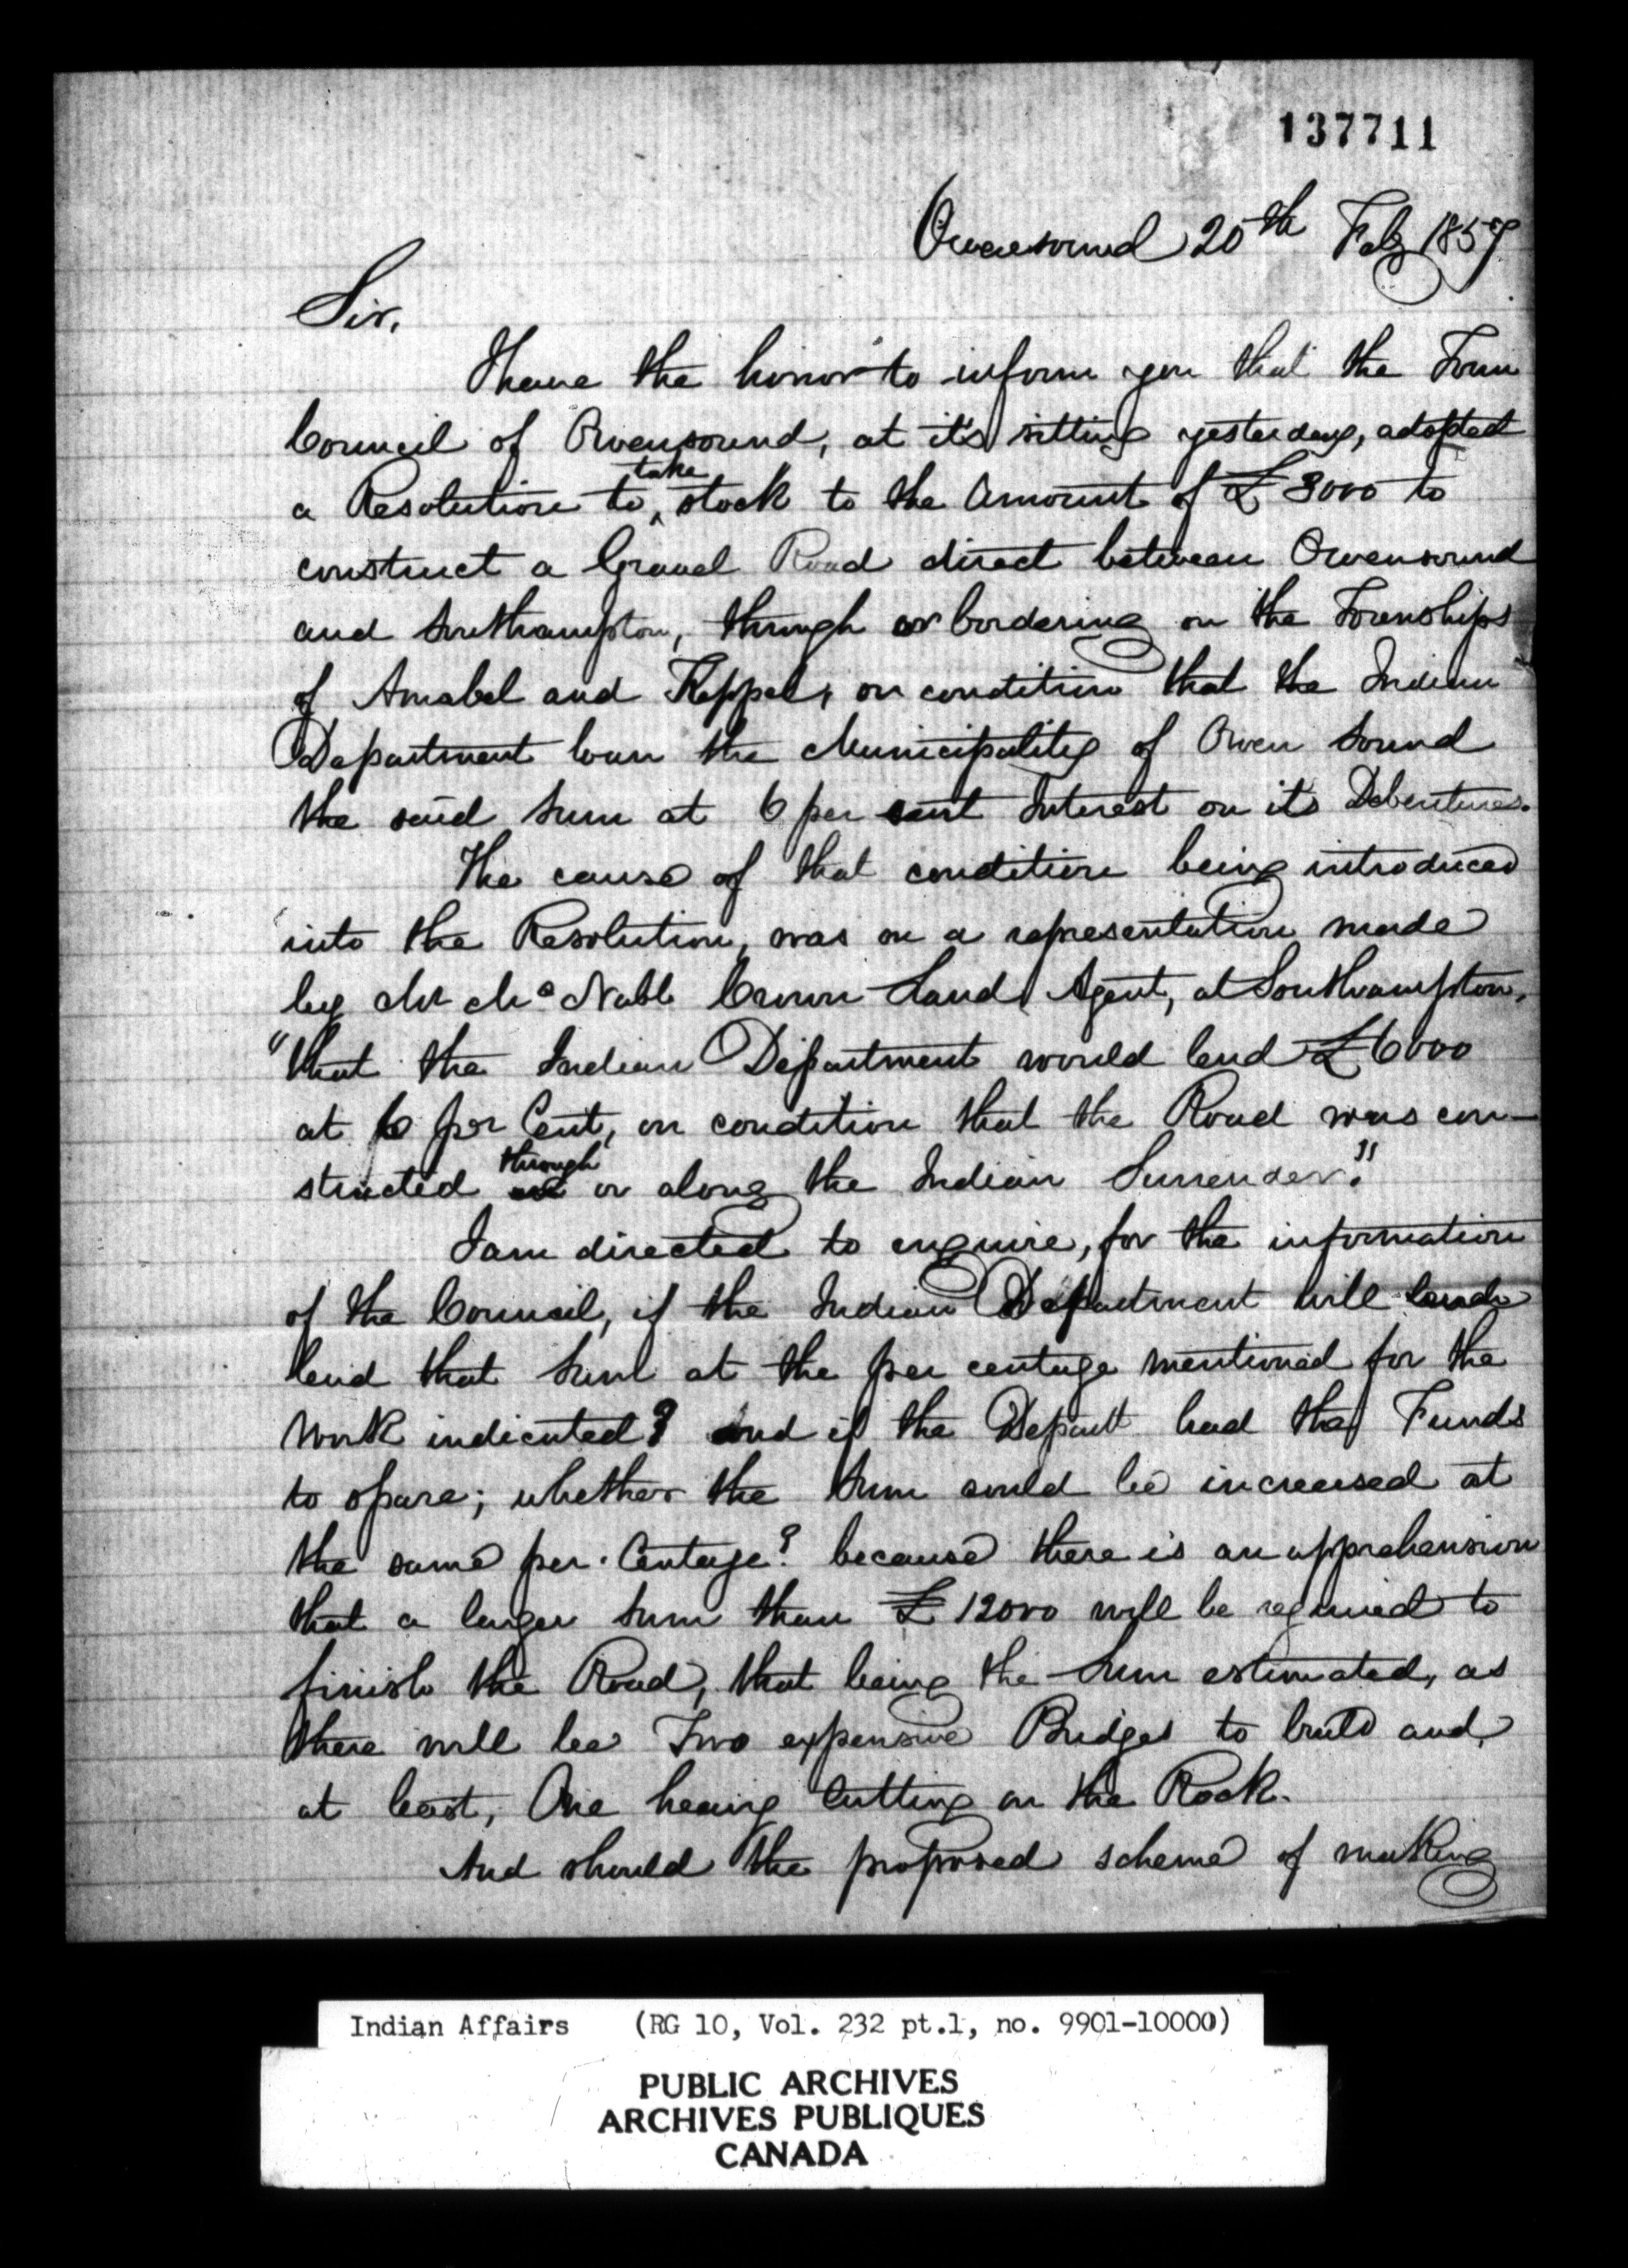 137711
Owensound 20th Feby 1857
Sir,
I have the honor to inform you that the Town
Council of Owensound, at it's sitting yesterday, adopted
a Resolution to take stock to the Amount of £3000 to
construct a Gravel Road direct between Owensound
and Southampton, through or bordering on the Townships
of Amabel and Keppel, on condition that the Indian
Department loan the Municipality of Owen Sound
the said Sum at 6 per cent Interest on it's Debentures.
The cause of that condition being introduced
into the Resolution, was on a representation made
by Mr Mc Nabb Crown Land Agent, at Southampton,
"that the Indian Department would lend £6000
at 6 per Cent, on condition that the Road was con-
structed through or along the Indian Surrender."
I am directed to enquire, for the information
of the Council, if the Indian Department will
lend that Sum at the per centage mentioned for the
work indicated? and if the Depart had the Funds
to spare; whether the Sum could be increased at
the same per. Centage? because there is an apprehension
that a larger Sum than £12000 will be required to
finish the Road, that being the Sum estimated, as
there will be Two expensive Bridges to build and,
at least, One heavy Cutting on the Rock.
And should the proposed scheme of making
Indian Affairs (RG 10, Vol. 232 pt.1, no. 9901-10000)
PUBLIC ARCHIVES
ARCHIVES PUBLIQUES
CANADA